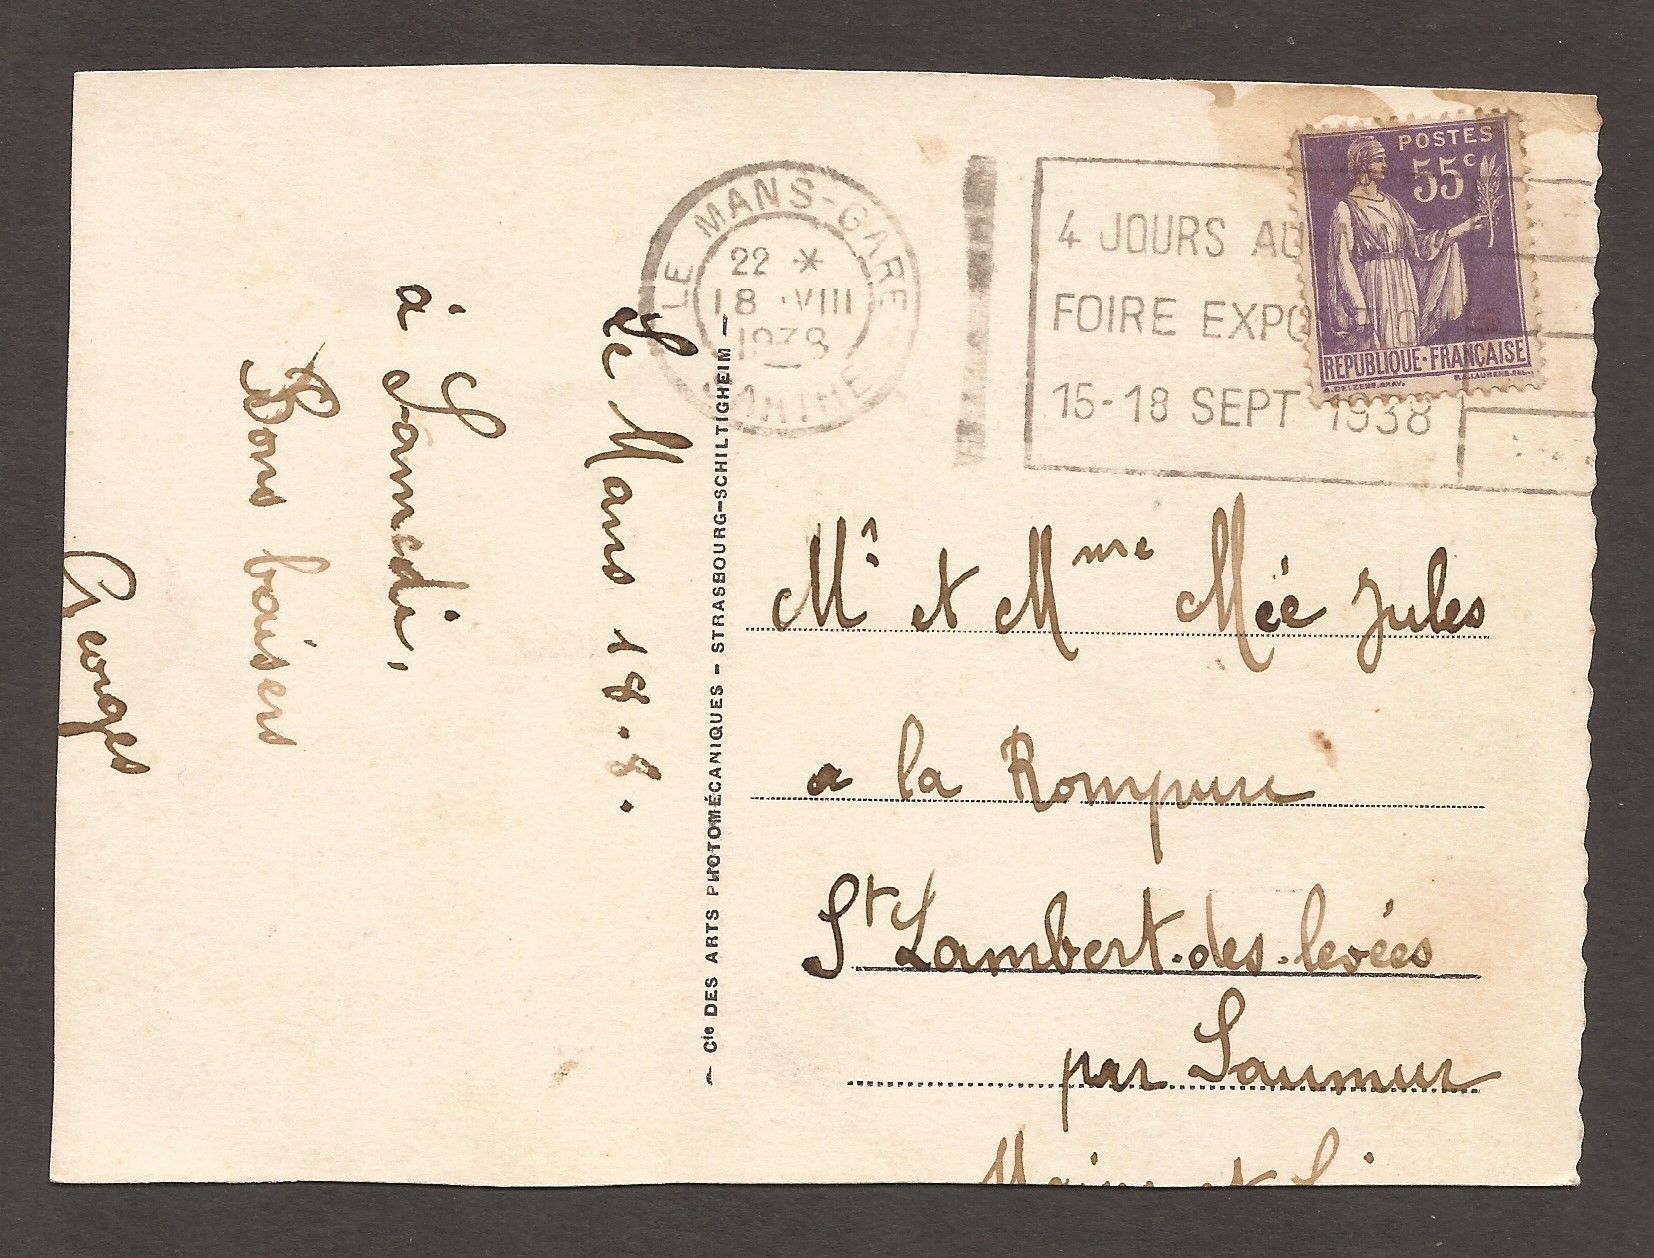 Le Mans 18.8.
à Samedi,
Bons baisers
Georges
– Cie DES ARTS PHOTOMÉCANIQUES – STRASBOURG–SCHILTIGHEIM –
LE MANS-GARE
22 *
18 ·VIII
1938
SARTHE
4 JOURS AU
FOIRE EXPO
15-18 SEPT 1938
POSTES
55c
REPUBLIQUE·FRANÇAISE
Mr et Mme Mée Jules
a la Rompure
St Lambert.des.levées
par Saumur
Maine et Loire